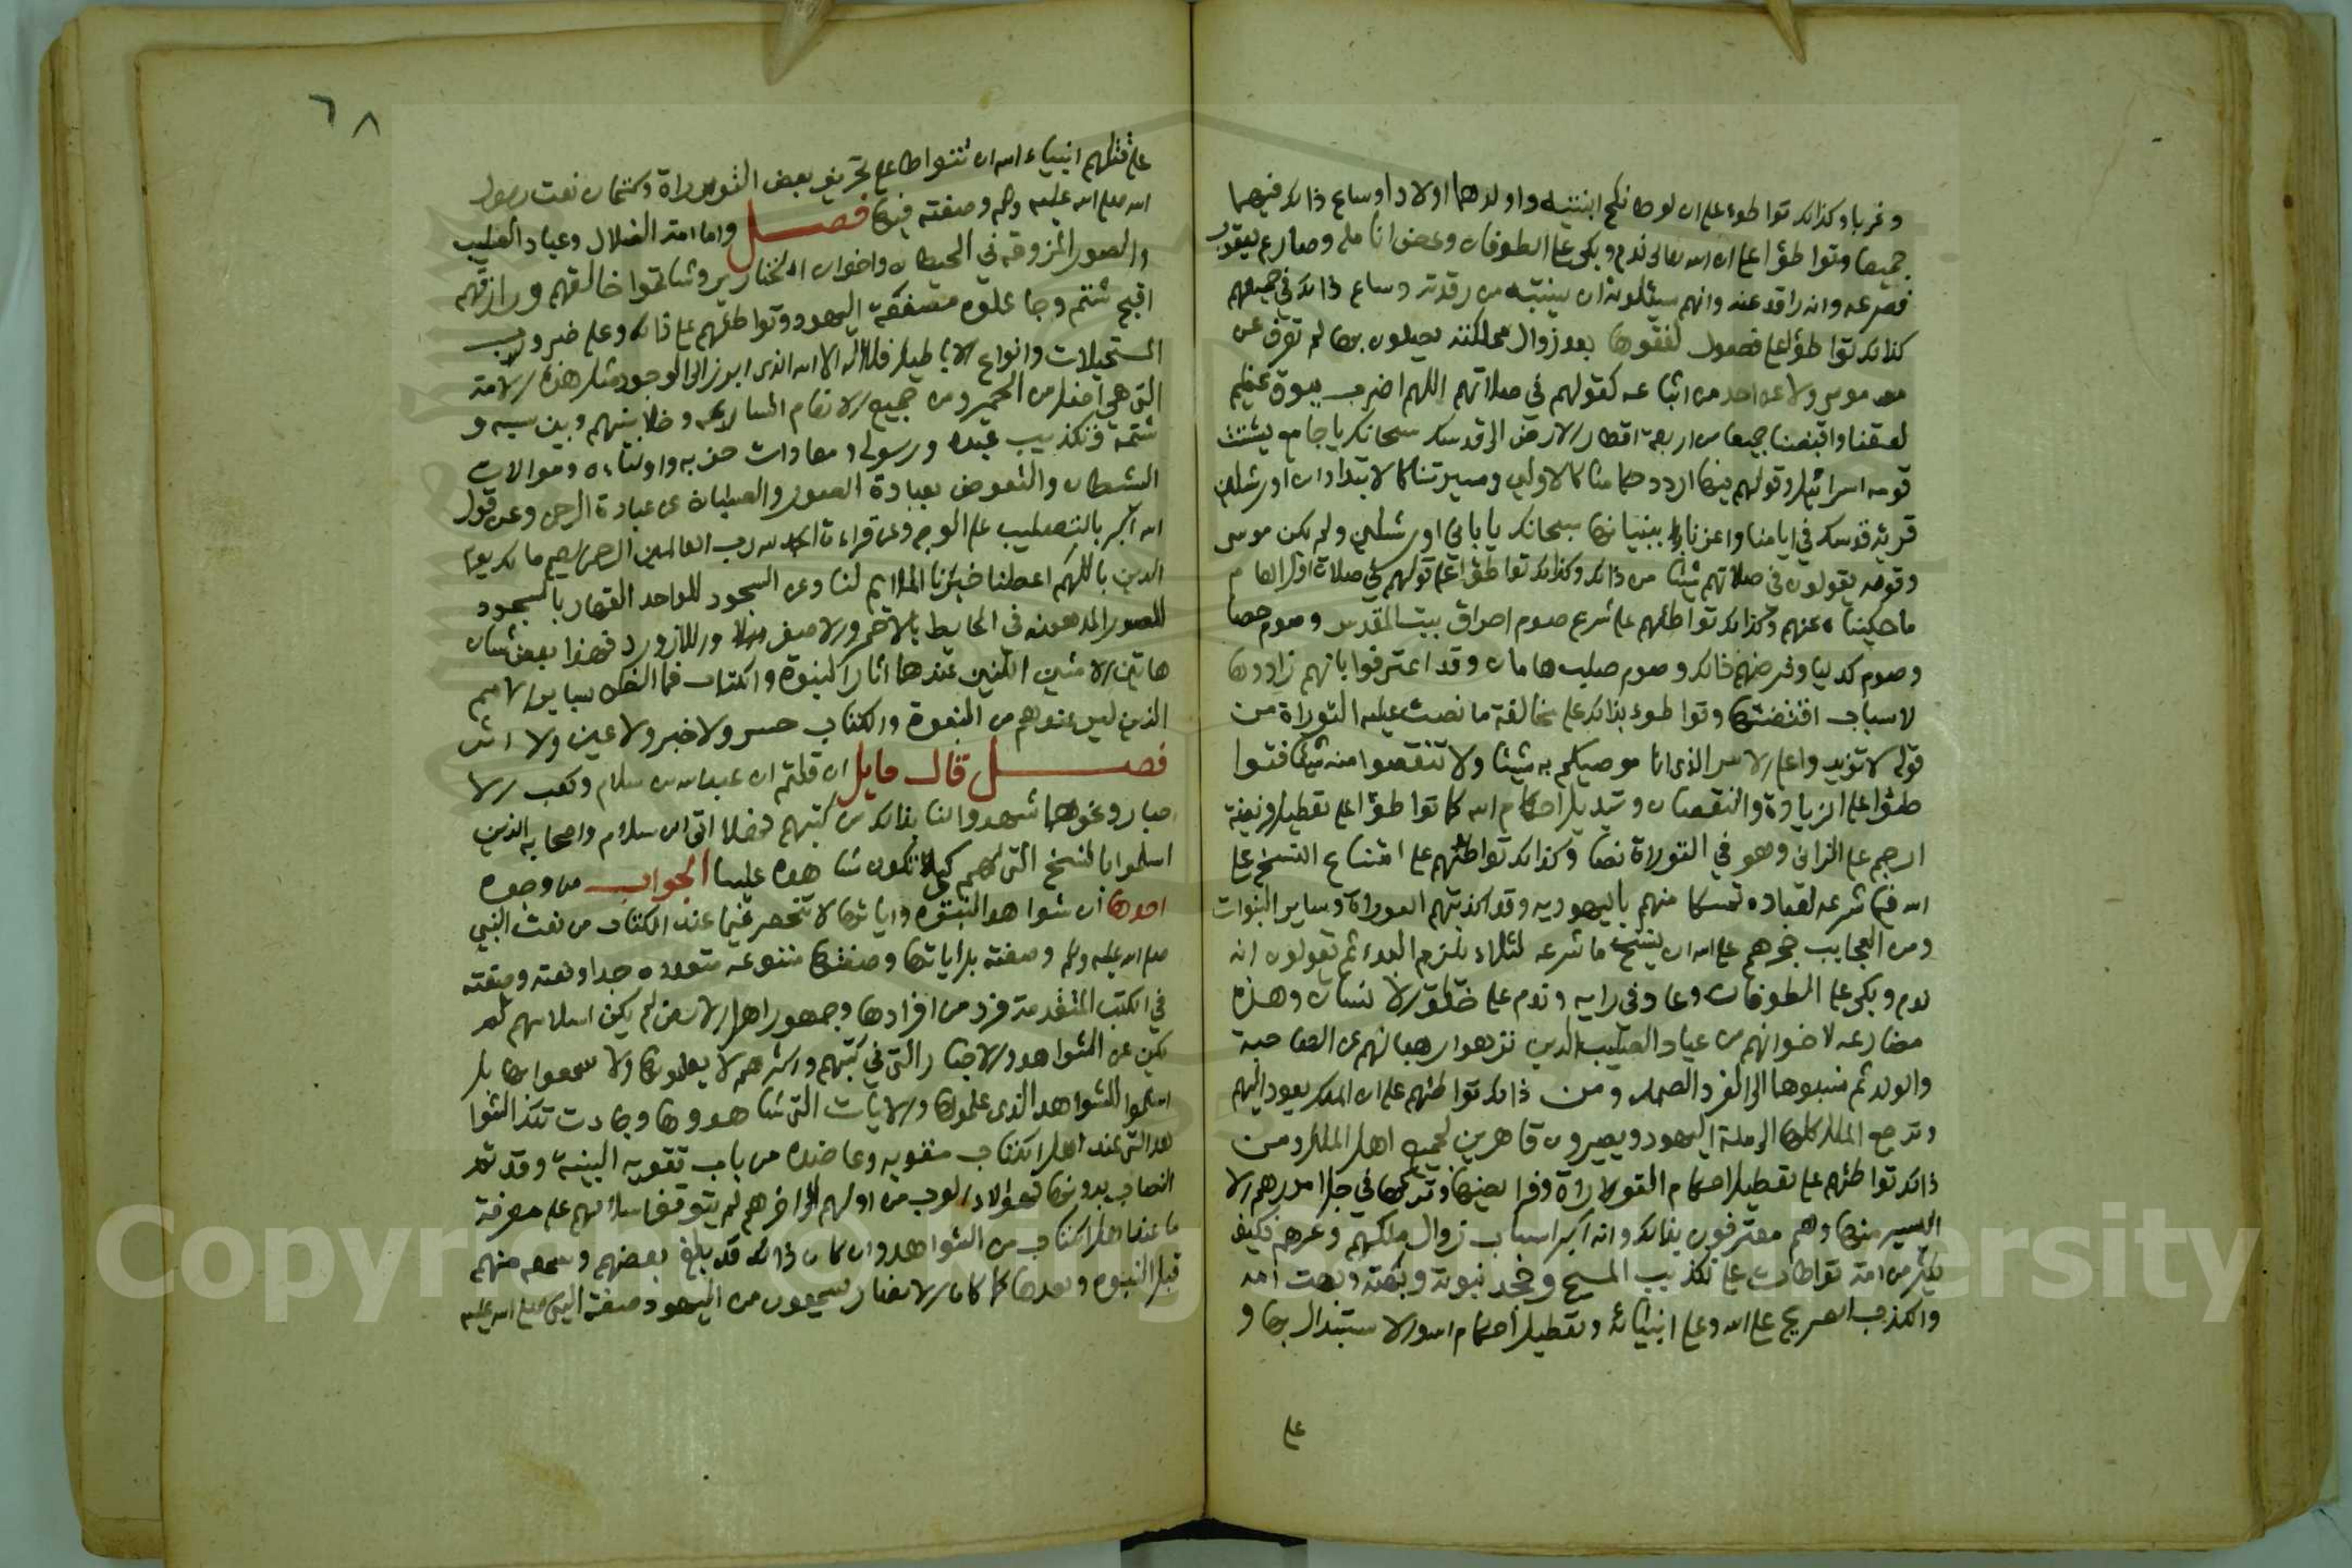 وغربا وكذلك تواطوء على ان لوطا نكح ابنتيه واولدهما اولادا وساع ذلك فيهما
جميعا وتواطؤا على ان الله تعالى ندم وبكى على الطوفان وعض انامله وصارع يعقوب
فصرعه وانه راقد عنهم وانهم يسئلونه ان ينتبه من رقدته وساع ذلك في جميعهم
كذلك تواطؤا على فصول لفقوها بعد زوال مملكتهم يصلون بها لم تعرف عن
موسى ولا عن احد من اتباعه كقولهم في صلاتهم اللهم اضرب ببوق عظيم
لعتقنا واقبضنا جميعا من اربعة اقطار الارض الى قدسك سبحانك يا جامع تشتت
قومه اسرائيل وقولهم فيها اردد حكامنا كالاولين ومسيرتنا كالابتداء وابن اورشليم
قرية قدسك في ايامنا واعزنا ببنيانها سبحانك يا باني اورشليم ولم يكن موسى
وقومه يقولون في صلاتهم شيئا من ذلك وكذلك تواطؤا على قولهم في صلاة اول العام
ما حكيناه عنهم وكذلك تواطئهم على شرع صوم احراق بيت المقدس وصوم حصا
وصوم كدليا وفرضهم ذلك وصوم صلب هامان وقد اعترفوا بانهم زادوها
لاسباب اقتضتها وتواطوء بذلك على مخالفة ما نصت عليه التوراة من
قوله لا تزيدوا على الامر الذي انا موصيكم به شيئا ولا تنقصوا منه شيئا فتوا
طئوا على الزيادة والنقصان وتبديل احكام الله كما تواطؤا على تعطيل فريضة
الرجم على الزاني وهو في التوراة نصا وكذلك تواطئهم على امتناع النسخ على
الله فيما شرعه لعباده تمسكا منهم باليهودية وقد اكذبتهم التوراة وساير النبوات
ومن العجايب حجرهم على الله ان ينسخ ما شرعه لئلا يلزم البداء ثم يقولون انه
ندم وبكى على الطوفان وعاد في رايه وندم على خلق الانسان وهذه
مضارعه لاخوانهم من عباد الصليب الذين نزهوا رهبانهم عن الصاحبة
والولد ثم نسبوها الى الفرد الصمد ومن ذلك تواطئهم على ان الملك يعود اليهم
وترجع الملل كلها الى ملة اليهود ويصيرون قاهرين لجميع اهل الملل ومن
ذلك تواطئهم على تعطيل احكام التوراة وفرايضها وتركها في جل امورهم الا
اليسير منها وهم معترفون بذلك وانه اكبر اسباب زوال ملكهم وعزهم فكيف
ينكر من امة تواطات على تكذيب المسيح وجحد نبوته وبهته وبهت امه
والكذب الصريح على الله وعلى انبيائه وتعطيل احكام الله والاستبدال بها و
على
٦٨
على قتلهم انبياء الله ان تتواطا على تحريف بعض التوراة وكتمان نعت رسول
الله صلى الله عليه وسلم وصفته فيها فصل واما امة الضلال وعباد الصليب
والصور المزوقة في الحيطان واخوان الخنازير وشاتموا خالقهم ورازقهم
اقبح شتم وجاعلوه مصفعة اليهود وتواطئهم على ذلك وعلى ضروب
المستحيلات وانواع الاباطيل فلا اله الا الله الذي ابرز الى الوجود مثل هذه الامة
التي هي اضل من الحمير ومن جميع الانعام السائمه وخلا بينهم وبين سبه و
شتمه وتكذيب عبده ورسوله ومعادات حزبه واوليائه وموالات
الشيطان والتعوض بعبادة الصور والصلبان عن عبادة الرحمن وعن قول
الله اكبر بالتصليب على الوجه وعن قراءة الحمد لله رب العالمين الرحمن الرحيم مالك يوم
الدين باللهم اعطنا خبزنا الملايم لنا وعن السجود للواحد القهار بالسجود
للصور المدهونه في الحايط بالاحمر والاصفر واللازورد فهذا بعض شان
هاتين الامتين اللتين عندهما اثار النبوة والكتاب فما الظن بساير الامم
الذين ليس عندهم من النبوة والكتاب حس ولا خبر ولا عين ولا اثر
فصل قال قايل ان قلتم ان عبدالله بن سلام وكعب الا
حبار ونحوهما شهدوا لنا بذلك من كتبهم فهلا اتى ابن سلام واصحابه الذين
اسلموا بالنسخ التي لهم كي تكون شاهدة علينا الجواب من وجوه
احدها ان شواهد النبوة واياتها لا تنحصر فيما عند اهل الكتاب من نعت النبي
صلى الله عليه وسلم وصفته بل اياتها وصفتها متنوعه متعدده جدا ونعته وصفته
في الكتب المتقدمة فرد من افرادها وجمهور اهل الارض لم يكن اسلامهم لم
يكن عن الشواهد والاخبار التي في كتبهم واكثرهم لا يعلمونها ولا سمعوا بها بل
اسلموا للشواهد الذي علموها والايات التي شاهدوها وجاءت تلك الشوا
هد التي عند اهل الكتاب مقويه وعاضده من باب تقوية البينة وقد تم
النصاب بدونها فهؤلاء العرب من اولهم الى اخرهم لم يتوقف اسلامهم على معرفة
ما عند اهل الكتاب من الشواهد وان كان ذلك قد بلغ بعضهم وسمعه منهم
قبل النبوه وبعدها كما كان الانصار يسمعون من اليهود صفة النبي صلى الله عليه